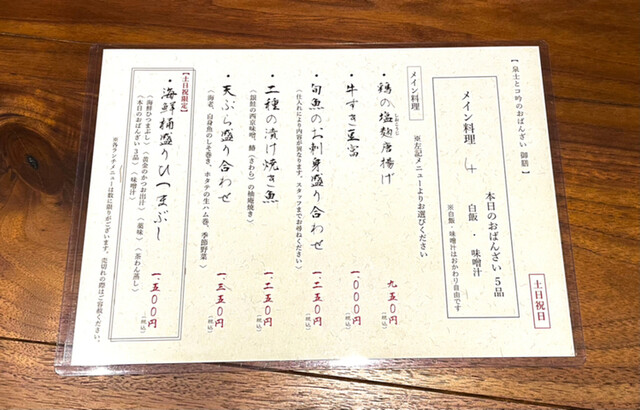 土日祝日
【泉士とコ吟のおばんざい 御膳】
メイン料理 +
本日のおばんざい5品
白飯 ・ 味噌汁
※白飯・味噌汁はおかわり自由です
メイン料理
※左記メニューよりお選びください
・鶏の塩麹唐揚げ 九五〇円(税込)
しおこうじ
・牛すき豆富 一、〇〇〇円(税込)
・旬魚のお刺身盛り合わせ 一、二五〇円(税込)
(仕入れにより内容が異なります。スタッフまでお尋ねください)
・二種の漬け焼き魚 一、二五〇円(税込)
(銀鮭の西京味噌、鰆(さわら)の柚庵焼き)
・天ぷら盛り合わせ 一、三五〇円(税込)
(海老、白身魚のしそ巻き、ホタテの生ハム巻、季節野菜)
【土日祝限定】
・海鮮桶盛りひつまぶし 一、五〇〇円(税込)
(海鮮ひつまぶし)(黄金のかつお出汁)(薬味)(茶わん蒸し)
(本日のおばんざい3品)(味噌汁)
※各ランチメニューは数に限りがございます。売切れの際はご容赦ください。